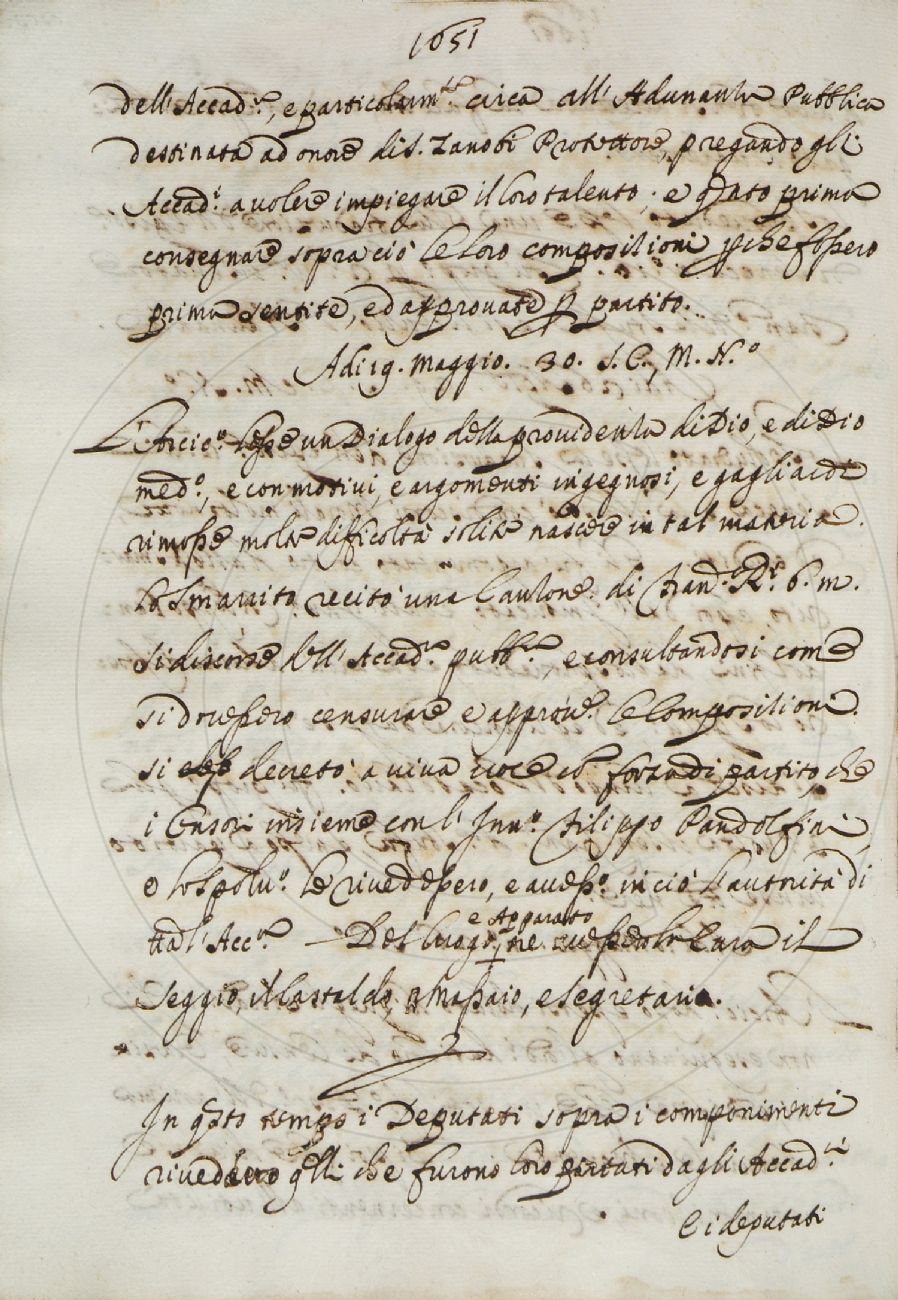 1651
dell'Accad.ª, e particolarm.te circa all'Adunanza Pubblica
destinata ad onore di S. Zanobi Protettore, pregando gli
Accad.i a volere impiegare il loro talento; e qto prima
consegnare sopra ciò le loro compositioni pche fossero
prima sentite, ed approvate p partito.
Adi 19. Maggio. 30. S. C., M. N.º
L'Arcic.º lesse un Dialogo della providenza di Dio, e di Dio
med.º, e con motivi, e argomenti ingegnosi, e gagliardi
rimosse molte difficoltà solite nascere in tal materia.
Lo Smarrito recitò una Canzone di Fran.º R.i b. m.
Si discorse dell'Accad.ª pubb.ca, e consultandosi come
si dovessero censurare, e approv.e le Compositioni
si decretò a viva voce cō forza di partito, che
i Censori insieme con l'Inn.º Filippo Pandolfini
e lo Spolv.º le rivedessero, e avess.º in ciò l'autorità di
tta l'Acc.ª Del luogo, e Apparato ne avesse la Cura il
Seggio, il Castaldo, Massaio, e Segretario.
In qsto tempo i Deputati sopra i componimenti
rivedero qlli che furono loro portati dagli Accad.i
E i deputati